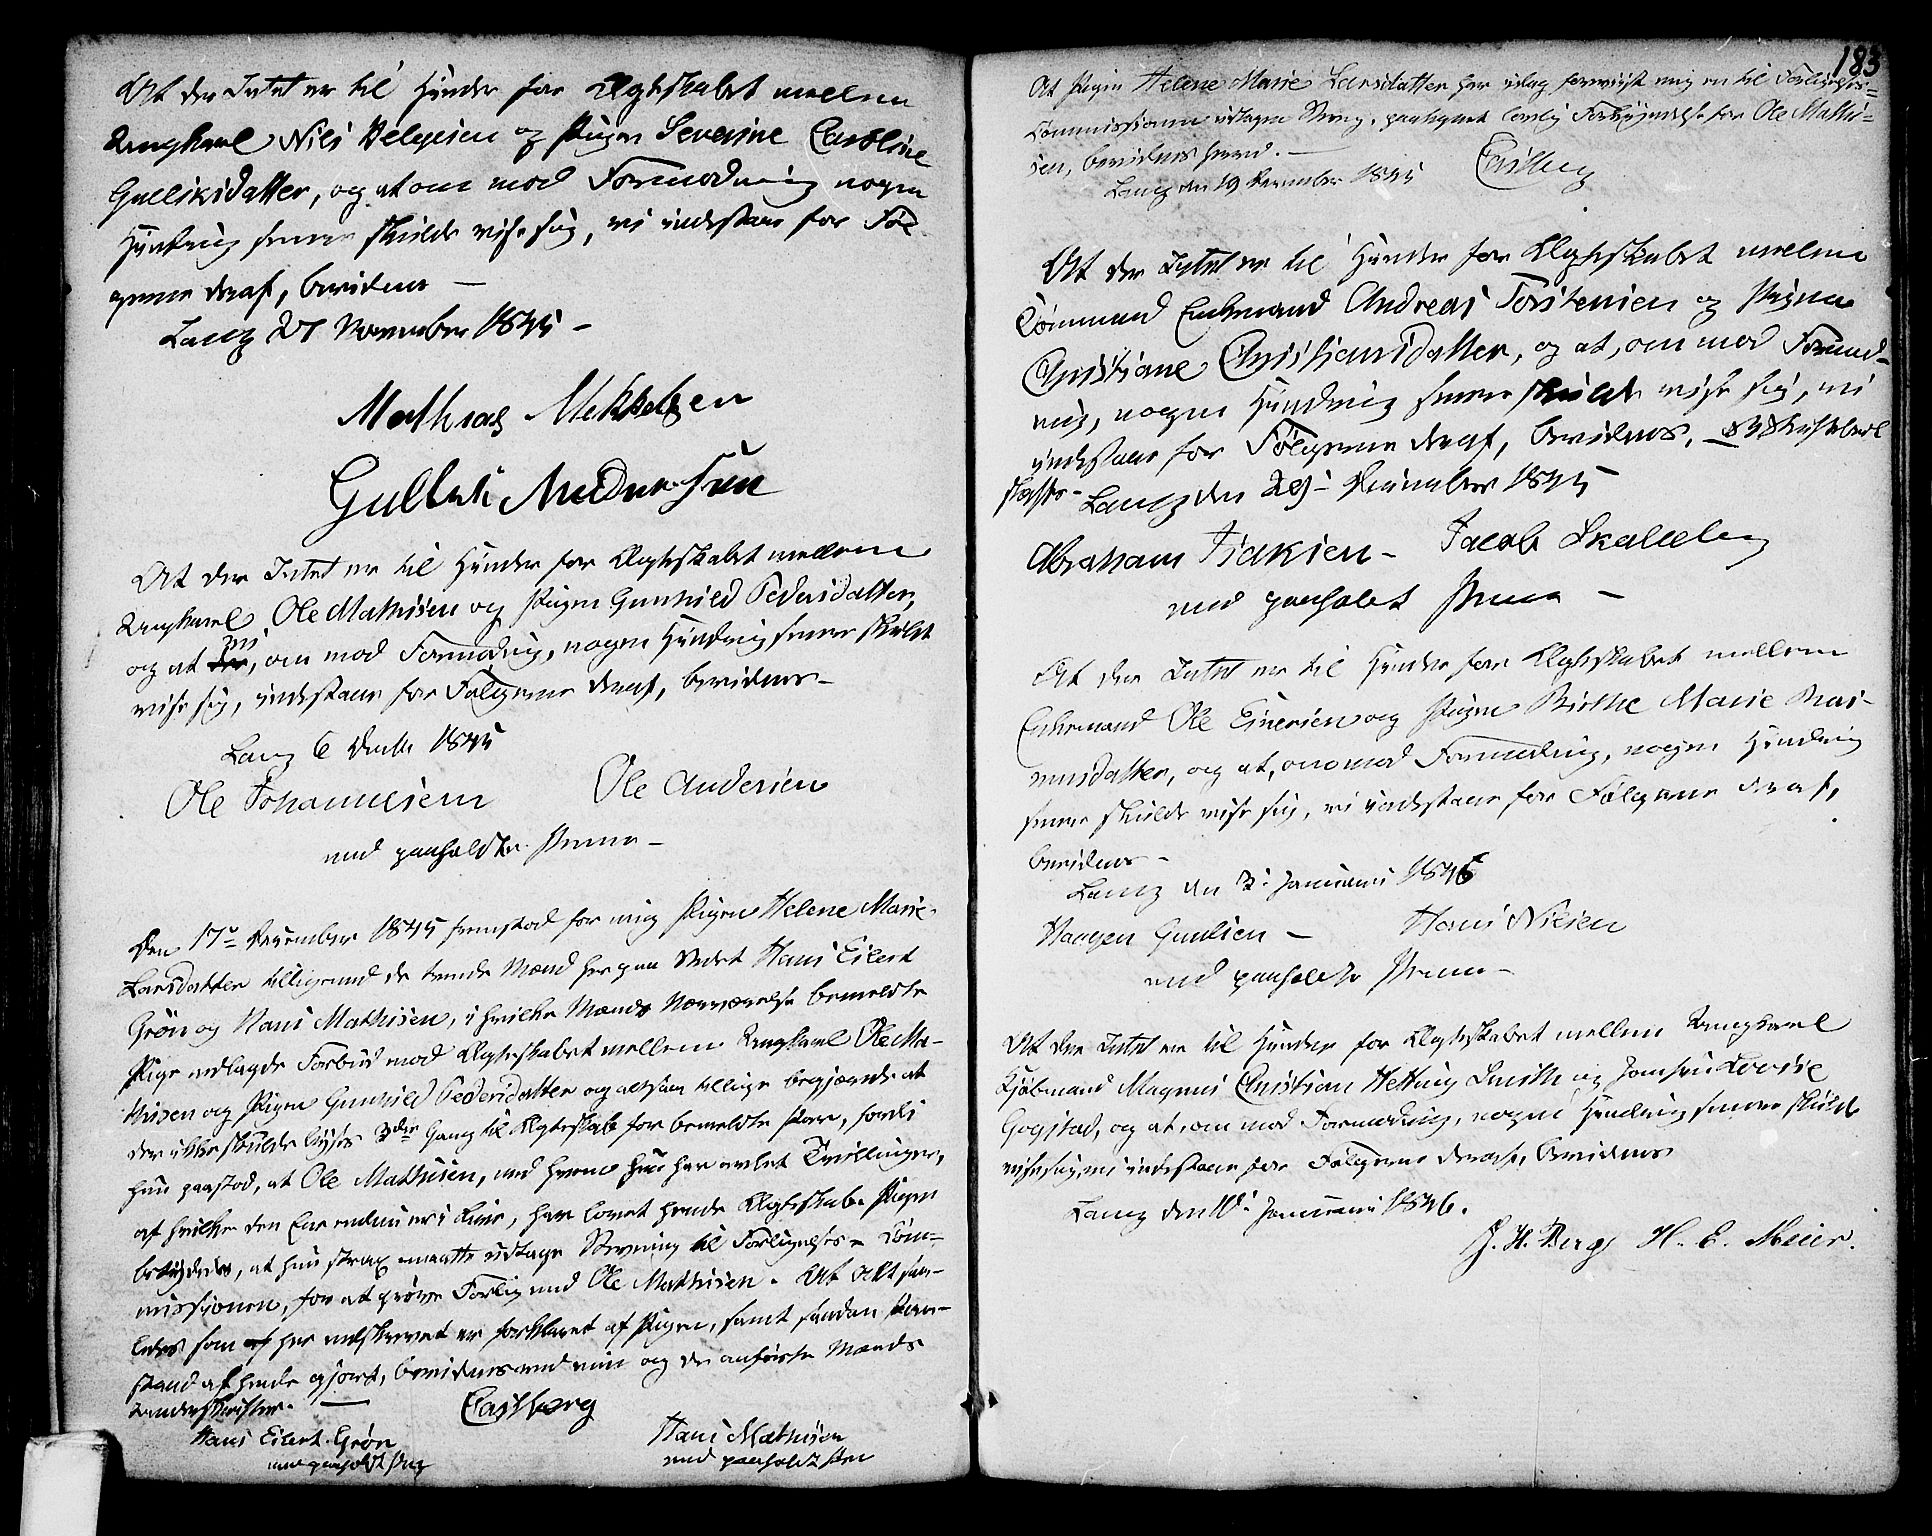 At der Intet er til Hinder for Ægteskabet mellem
Ungkarl Nils Helgesen og Pigen Severine Caroline
Gulliksdatter, og at om mod Formodning nogen
Hindring senere skulde vise sig, vi indestaae for Føl-
gerne deraf, bevidnes —
Laug 27 November 1845 –
Mathias Mekkelsen
Gullek Andersen
At der Intet er til Hinder for Ægteskabet mellem
Ungkarl Ole Mathisen og Pigen Gunhild Pedersdatter,
og at vi, om mod Formodning, nogen Hindring senere skulde
vise sig, indestaae for Følgerne deraf, bevidnes –
Laug 6 Decbr 1845
Ole Johannesen Ole Andersen
med paaholdte Penne –
Den 17de December 1845 fremstod for mig Pigen Helene Marie
Larsdatter tilligemed de tvende Mænd her paa Stedet Hans Eilert
Grøn og Hans Mathisen, i hvilke Mænds Nærværelse bemeldte
Pige nedlagde Forbud mod Ægteskabet mellem Ungkarl Ole Ma-
thisen og Pigen Gunhild Pedersdatter og altsaa tillige begjærede at
der ikke skulde lyses 3die Gang til Ægteskab for bemeldte Pare, fordi
hun paastod, at Ole Mathisen, med hvem hun har avlet Tvillinger,
af hvilke den Ene endnu er i Live, har lovet hende Ægteskab. Pigen
betydedes, at hun strax maatte udtage Stevning til Forligelses-Com-
missionen, for at prøve Forlig med Ole Mathisen. At Alt saa-
ledes som her nedskrevet er forklaret af Pigen, samt saadan Paa-
stand af hende gjort, bevidnes med min og de anførte Mænds
Underskrifter. —
Castberg
Hans Eilert Grøn Hans Mathisen
med paaholdt Pen med paaholdt Pen
183
At Pigen Helene Marie Larsdatter har idag foreviist mig en til Forligelses-
Commissionen udtagen Stevning, paategnet lovlig Forkyndelse for Ole Mathi-
sen, bevidnes herved. —
Laug den 19 December 1845 Castberg
At der Intet er til Hinder for Ægteskabet mellem
Tømmermand Enkemand Andreas Torstensen og Pigen
Christiane Christiansdatter, og at, om mod Formod-
ning, nogen Hindring senere skulde vise sig, vi
indestaae for Følgerne deraf, bevidnes.
Laug den 29de December 1845
Abraham Isaksen – Jacob Skalleberg
med paaholdt Penne –
At der Intet er til Hinder for Ægteskabet mellem
Enkemand Ole Einersen og Pigen Birthe Marie Ras-
musdatter, og at, om mod Formodning, nogen Hindring
senere skulde vise sig, vi indestaae for Følgerne deraf,
bevidnes –
Laug den 3de Januari 1846
Haagen Gunlsen – Hans Nilsen
med paaholdte Penne –
At der Intet er til Hinder for Ægteskabet mellem Ungkarl
Kjøbmand Magnus Christian Hetting Smith og Jomfru Lovise
Gogstad, og at, om mod Formodning, nogen Hindring senere skulde
vise sig, vi indestaae for Følgerne deraf, bevidnes
Laug den 10de Januari 1846.
J. H. Berg H. E. Meier.